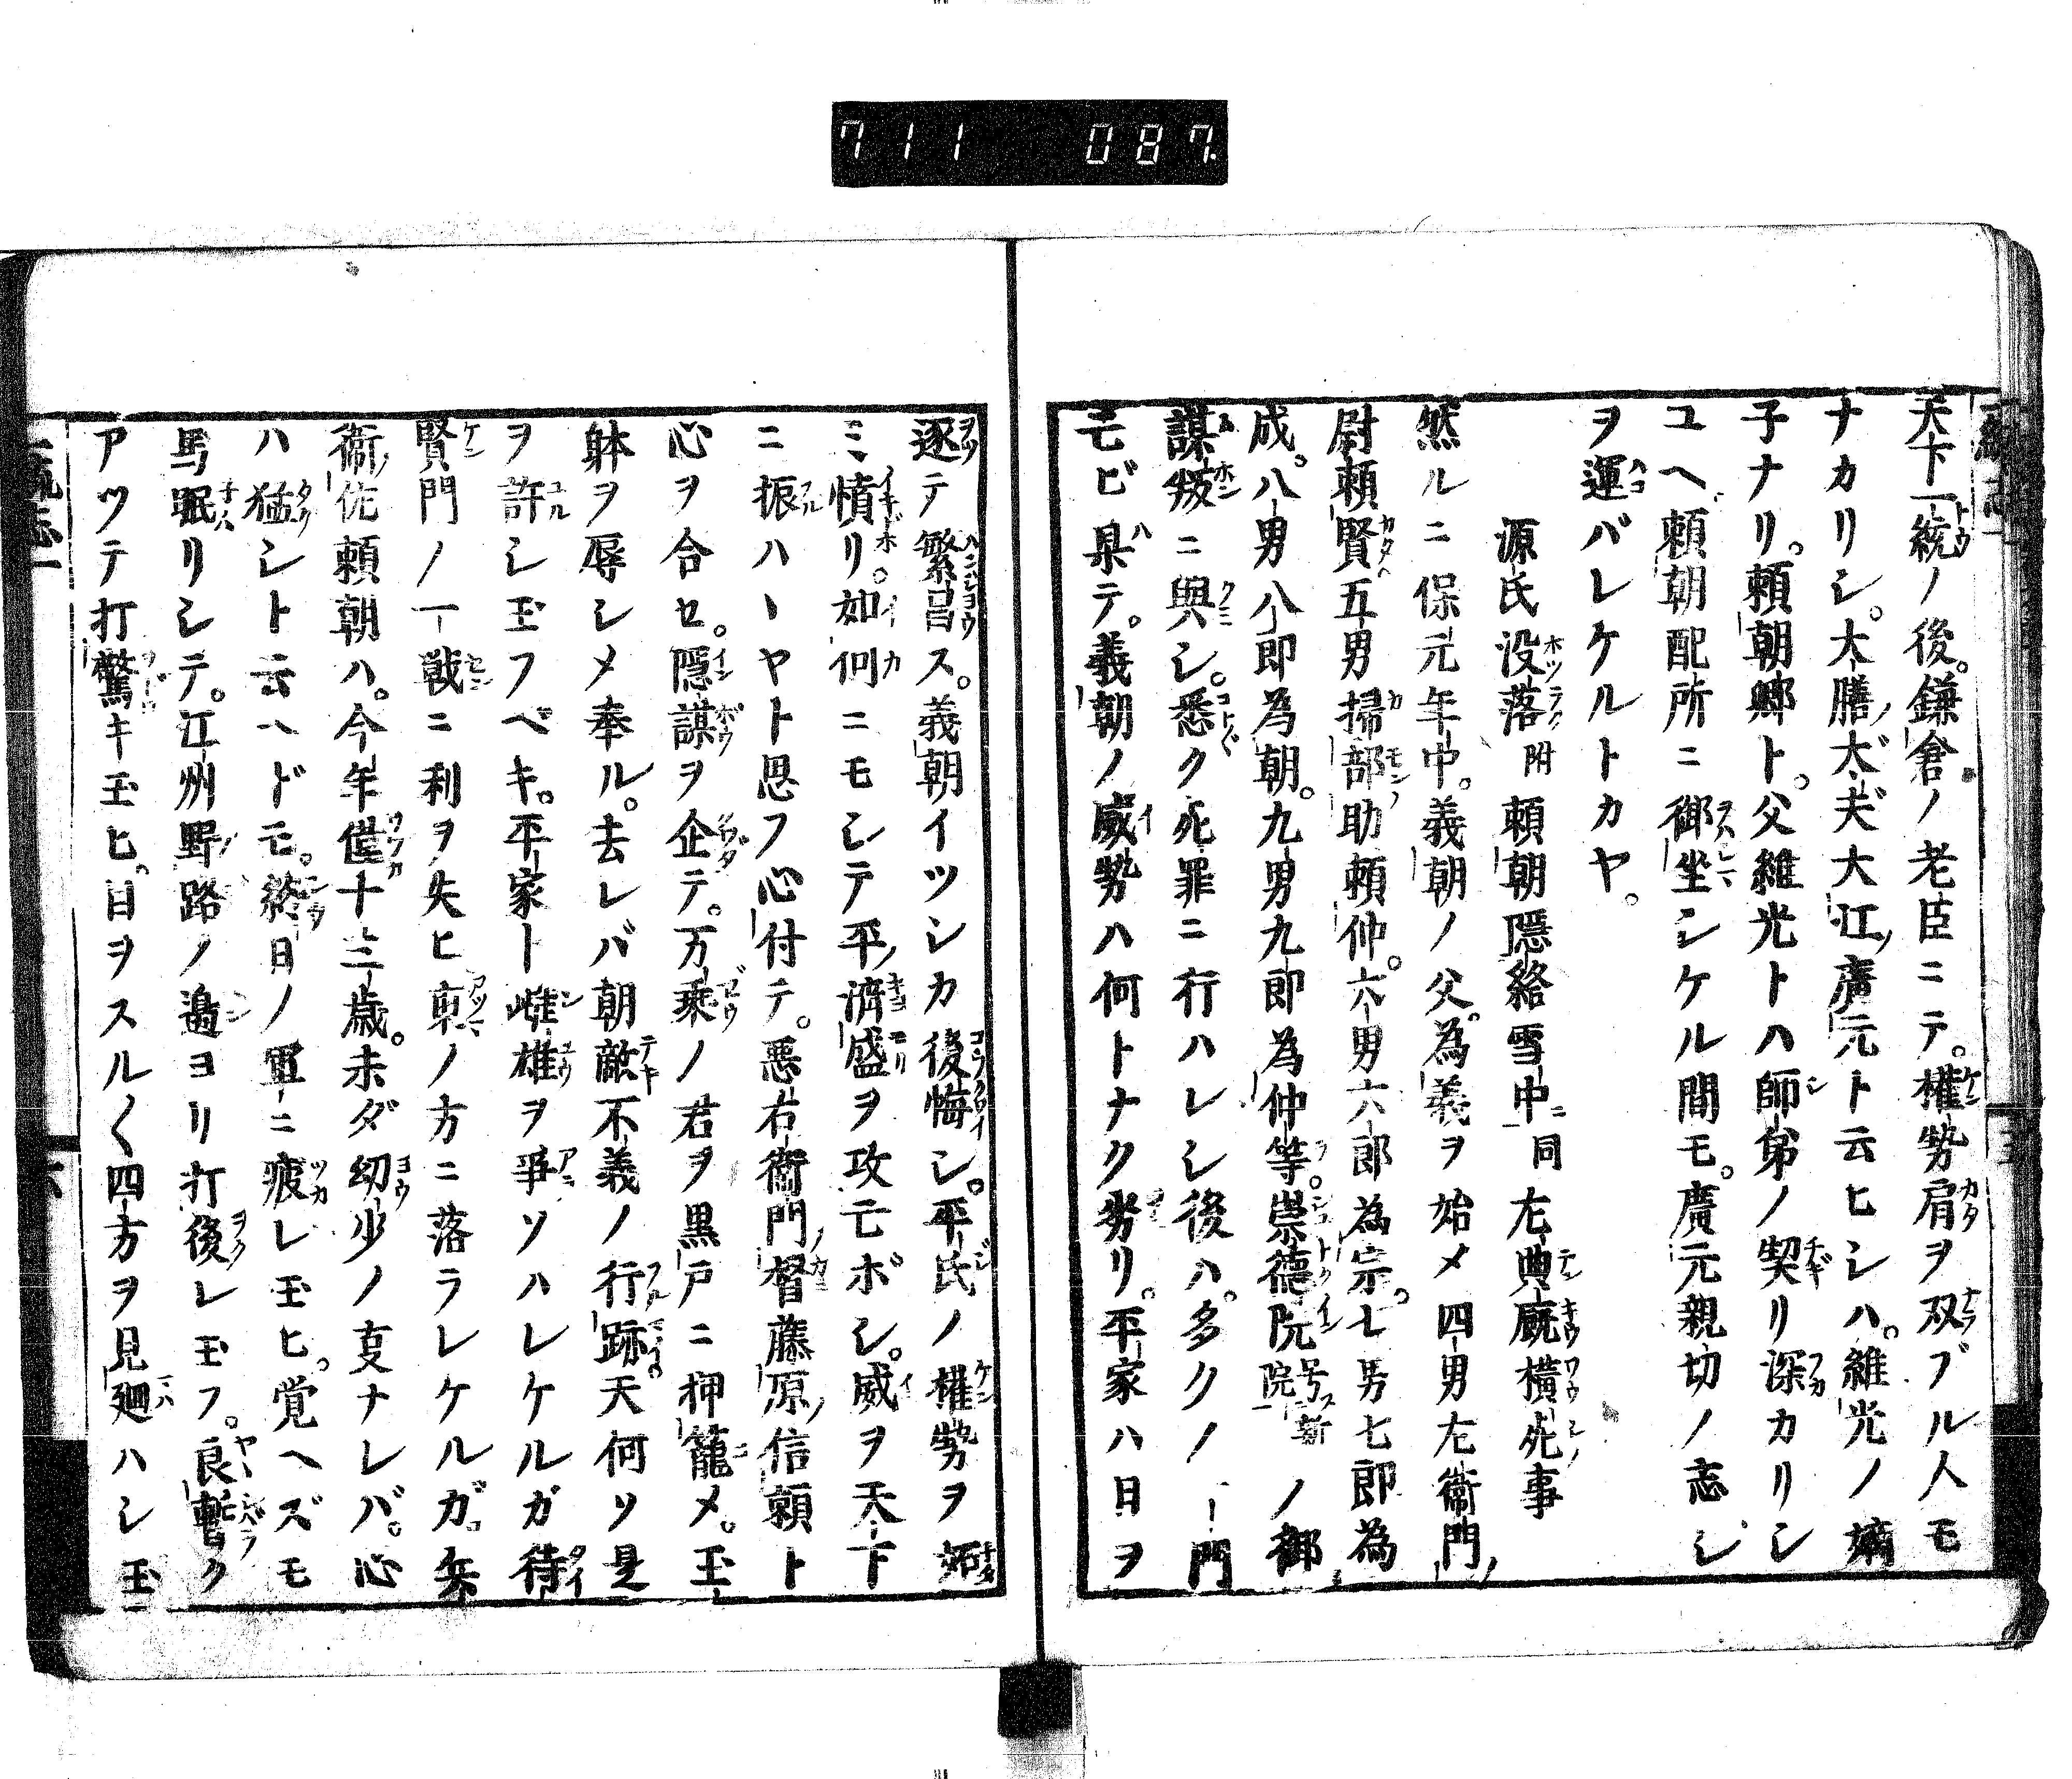 711 087.
天下一統ノ後。鎌倉ノ老臣ニテ。権勢肩ヲ双ブル人モ
ナカリシ。大膳ノ大夫大江ノ廣元ト云ヒシハ。維光ノ嫡
子ナリ。頼朝卿ト。父維光トハ師弟ノ契リ深カリシ
ユヘ。頼朝配所ニ御坐シケル間モ。廣元親切ノ志シ
ヲ運バレケルトカヤ。
源氏没落附頼朝隠絡雪中ニ同左典厩横死事
然ルニ保元年中。義朝ノ父。為義ヲ始メ四男左衛門ノ
尉頼賢五男掃部助頼仲。六男六郎為宗。七男七郎為
成。八男八郎為朝。九男九郎為仲等。崇徳院号ス新院ノ御
謀叛ニ與シ。悉ク死罪ニ行ハレシ後ハ。多クノ一門
亡ビ果テ。義朝ノ威勢ハ何トナク劣リ。平家ハ日ヲ
逐テ繁昌ス。義朝イツシカ後悔シ。平氏ノ権勢ヲ妬
ミ憤リ。如何ニモシテ平ノ清盛ヲ攻亡ボシ。威ヲ天下
ニ振ハヽヤト思フ心付テ。悪右衛門ノ督藤原ノ信頼ト
心ヲ合セ。隠謀ヲ企テ。万乗ノ君ヲ黒戸ニ押籠メ。玉
躰ヲ辱シメ奉ル。去レバ朝敵不義ノ行跡。天何ソ是
ヲ許シ玉フベキ。平家ト雌雄ヲ爭ソハレケルガ待
賢門ノ一戦ニ利ヲ失ヒ東ノ方ニ落ラレケルガ。兵
衛ノ佐頼朝ハ。今年僅十三歳。未ダ幼少ノ㕝ナレバ。心
ハ猛シト云ヘドモ。終日ノ軍ニ疲レ玉ヒ。覚ヘズモ
馬眠リシテ。江州野路ノ邉ヨリ打後レ玉フ。良暫ク
アツテ打驚キ玉ヒ。目ヲスルく四方ヲ見廻ハシ玉